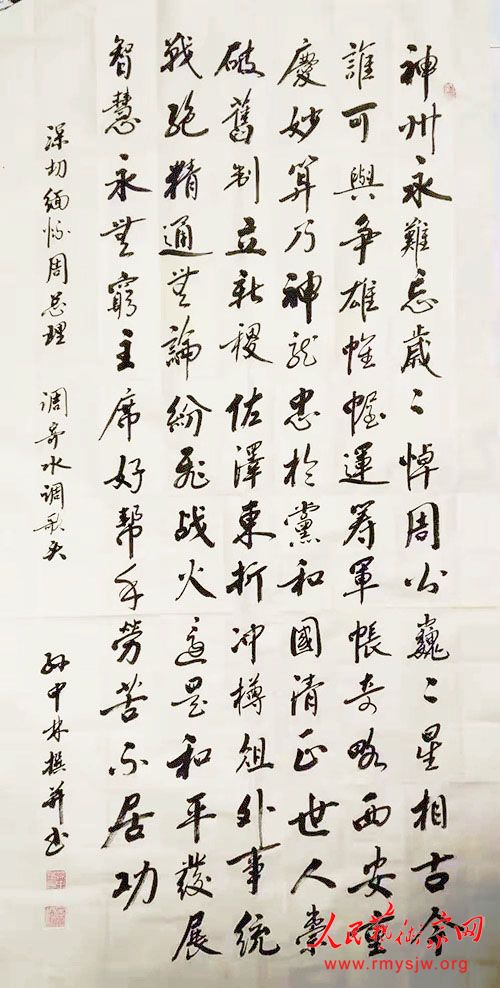 神州永難忘歲〻悼周公巍〻星相古今
誰可與争雄帷幄運筹軍帳奇略西安重
慶妙算乃神龙忠於黨和國清正世人崇
破舊制立新稷佐澤東折冲樽俎外事統
戰绝精通無論紛飛战火這是和平發展
智慧永無窮主席好幫手勞苦不居功
深切缅怀周总理 调寄水调歌头 孙中林撰并书
人民藝術家网
www.rmysjw.org